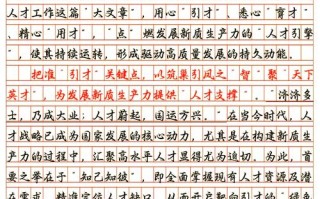 人才工作这篇"大文章",用心"引才"、悉心"育才"
、精心"用才","点"燃发展新质生产力的"人才引擎
",使其持续运转,形成驱动高质量发展的持久动能。
把准"引才"关键点,以筑巢引凤之"智"聚"天下
英才",为发展新质生产力提供"人才支撑"。"济济多
士,乃成大业;人才蔚起,国运方兴。"在当今时代,人
才战略已成为国家发展的核心动力,尤其是在构建新质生
产力的过程中,汇聚高水平人才显得尤为迫切。为此,首
要之举在于"知己知彼",即全面掌握现有人才资源及潜
在需求,精准定位人才缺口,从而开启靶向引才的"绿色